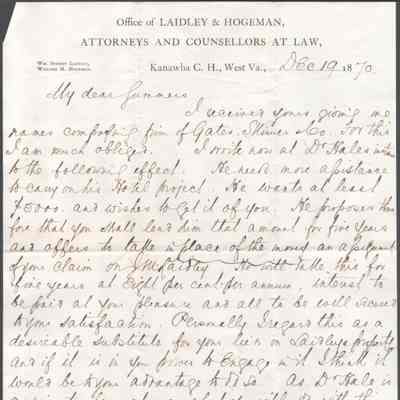 Office of LAIDLEY & HOGEMAN,
ATTORNEYS AND COUNSELLORS AT LAW,
WM. SYDNEY LAIDLEY,
WILLIAM H. HOGEMAN.
Kanawha C. H., West Va., Dec 19 1870
My dear Summers
I received yours, giving me
names composing firm of Gates, Skinner &Co. For this
I am much obliged. I write now at Dr Hales
to the following effect. He needs more assistance
to carry on his Hotel project. He wants at least
$5000. and wishes to get it of you. He proposes there
fore that you shall lend him that amount for five years
and offers to take in place of the money an assignment
of your claim on Laidley He will take this for
five years at Eight per cent per annum, interest to
be paid at your pleasure and all to be well secured
to your satisfaction. Personally I regard this as a
desireable substitute for your lien on Laidleys property
and if it is in your power to engage in it I think it
would be to your advantage to do so. As Dr Hale is